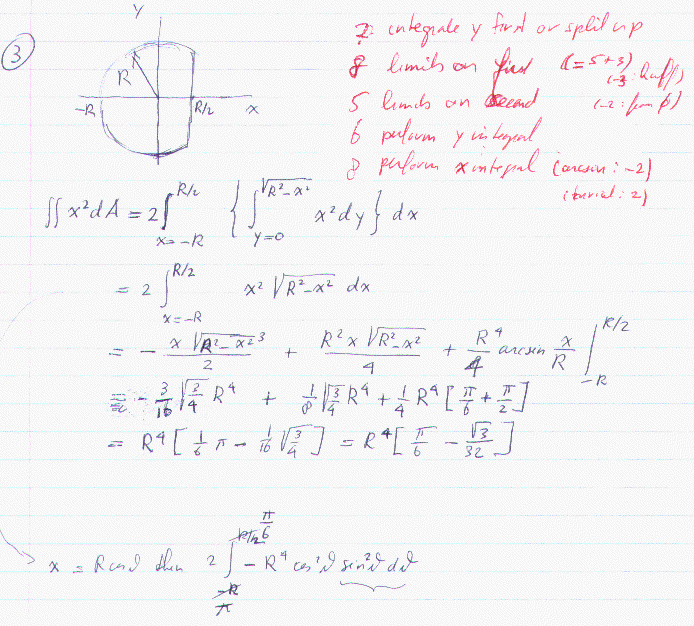 3
Y
R
-R
R/2
x
2 integrate y first or split up
8 limits on first (=5+3)
5 limits on second
6 perform y integral
8 perform x integral (arcsin: -2)
(trivial: 2)
∬ x² dA = 2 ∫_{x=-R}^{R/2} { ∫_{y=0}^{√(R²-x²)} x² dy } dx
= 2 ∫_{x=-R}^{R/2} x² √(R²-x²) dx
= - x √(R²-x²)³ / 2 + R² x √(R²-x²) / 4 + R⁴/4 arcsin x/R |_{-R}^{R/2}
= - 3/16 √(3/4) R⁴ + 1/8 √(3/4) R⁴ + 1/4 R⁴ [ π/6 + π/2 ]
= R⁴ [ 1/6 π - 1/16 √(3/4) ] = R⁴ [ π/6 - √3/32 ]
x = R cos ϑ then 2 ∫_{π}^{π/6} - R⁴ cos²ϑ sin²ϑ dϑ